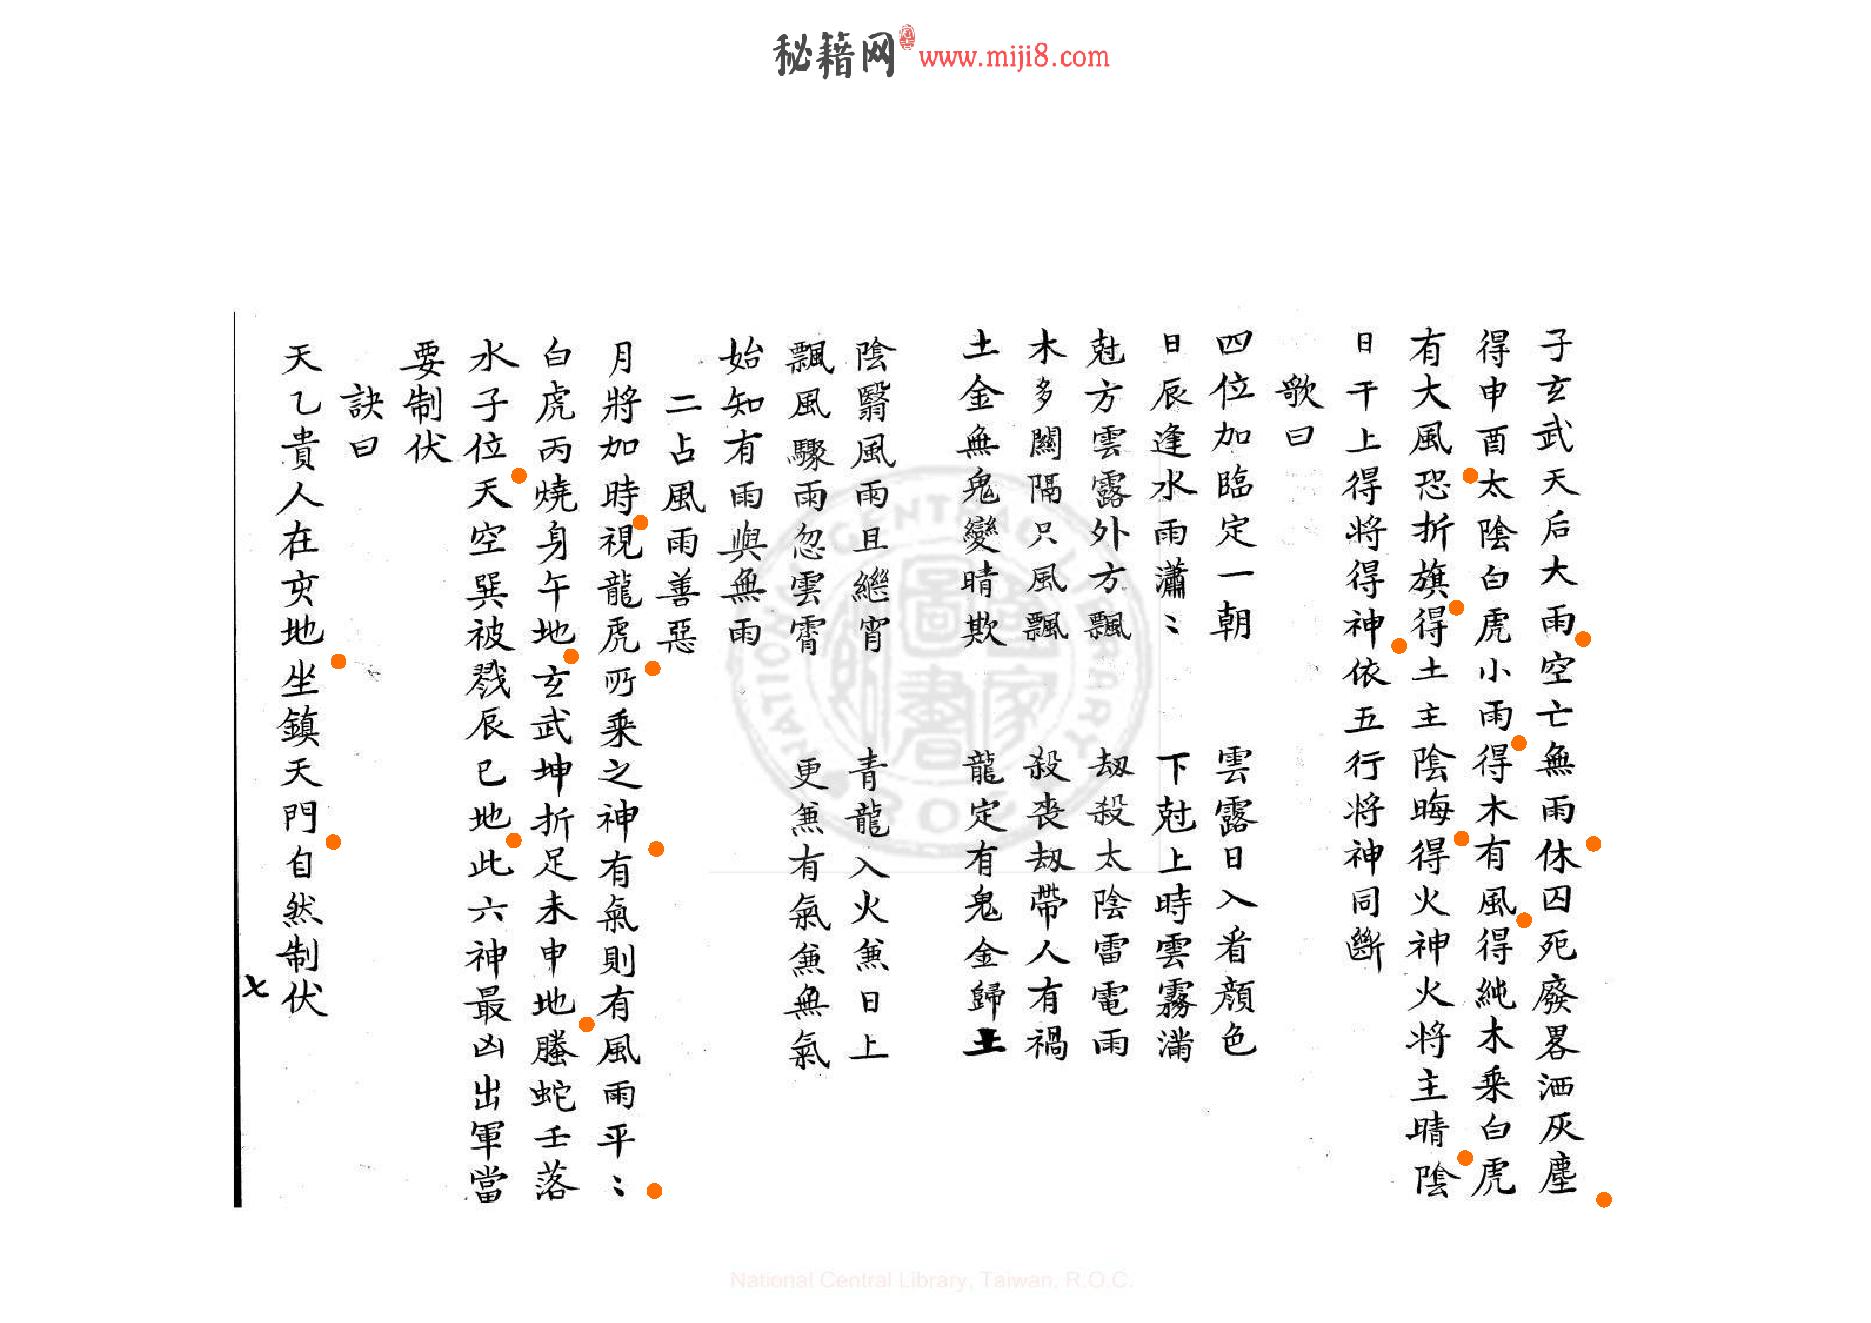 秘籍网 www.miji8.com
子玄武天后大雨空亡無雨休囚死廢畧洒灰塵
得申酉太陰白虎小雨得木有風得純木乘白虎
有大風恐折旗得土主陰晦得火神火将主晴陰
日干上得将得神依五行将神同斷
歌曰
四位加臨定一朝 雲露日入看顔色
日辰逢水雨瀟〻 下尅上時雲霧滿
尅方雲露外方飄 劫殺太陰雷電雨
木多關隔只風飄 殺丧劫帶人有禍
土金無鬼變晴欺 龍定有鬼金歸土
陰翳風雨且繼宵 青龍入火無日上
飄風驟雨忽雲霄 更無有氣無無氣
始知有雨與無雨
二占風雨善惡
月將加時視龍虎所乘之神有氣則有風雨平〻
白虎丙燒身午地玄武坤折足未申地螣蛇壬落
水子位天空巽被戮辰巳地此六神最凶出軍當
要制伏
訣曰
天乙貴人在亥地坐鎮天門自然制伏
七
National Central Library, Taiwan, R.O.C.